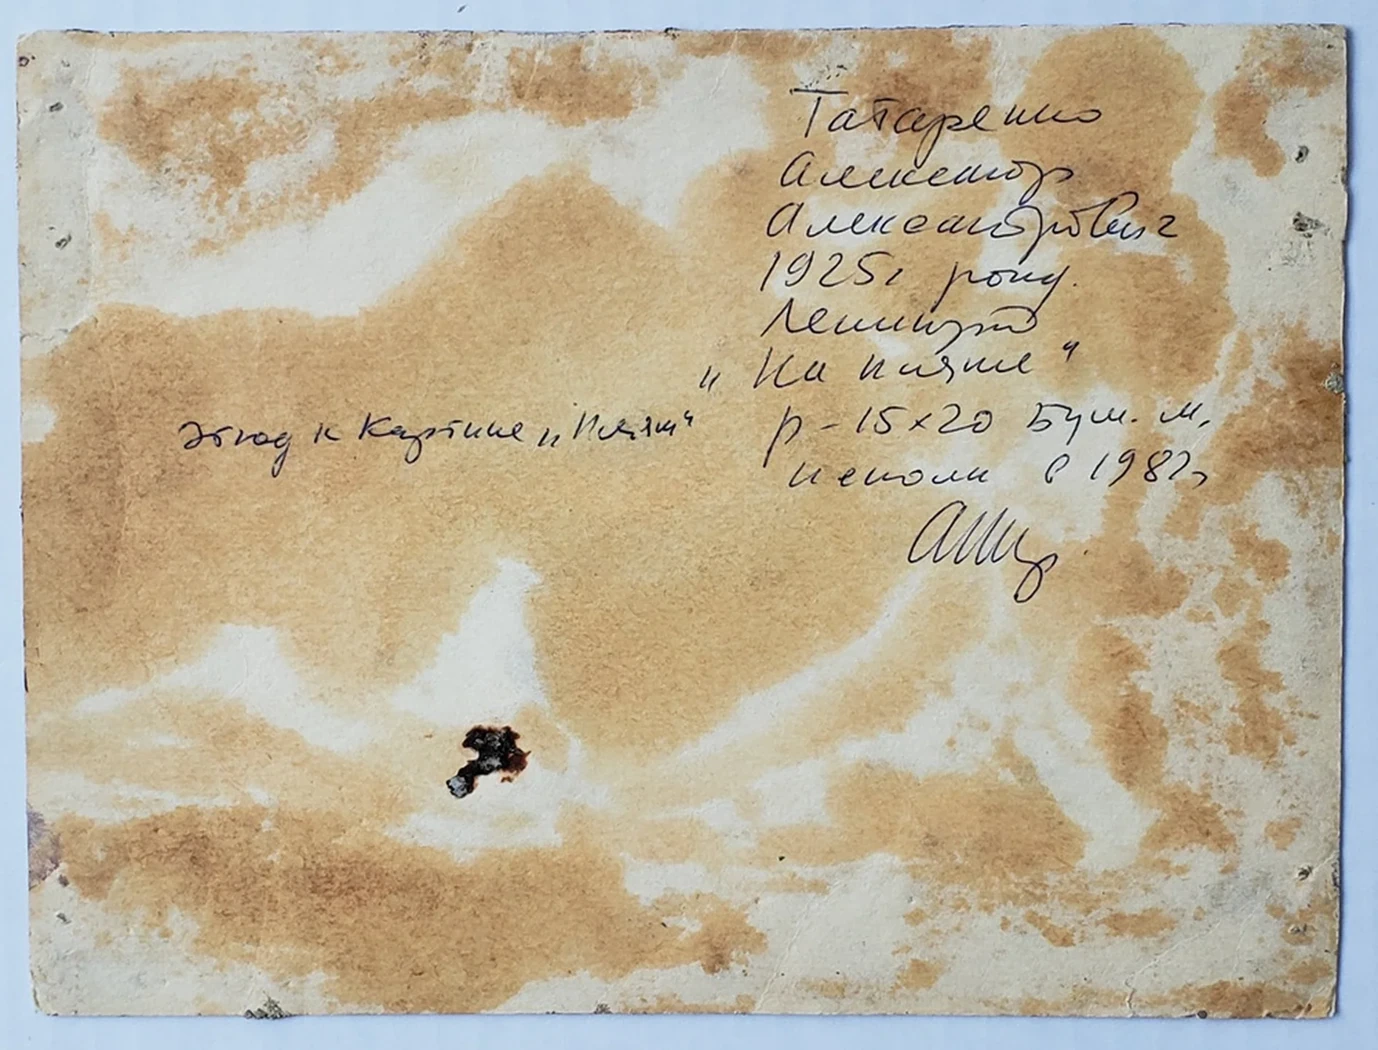 Татаренко
Александр
Александрович
1925г рожд.
Ленинград
„На пляже"
этюд к картине „Пляж"
р-15х20 Бум. м.
исполн в 1982г